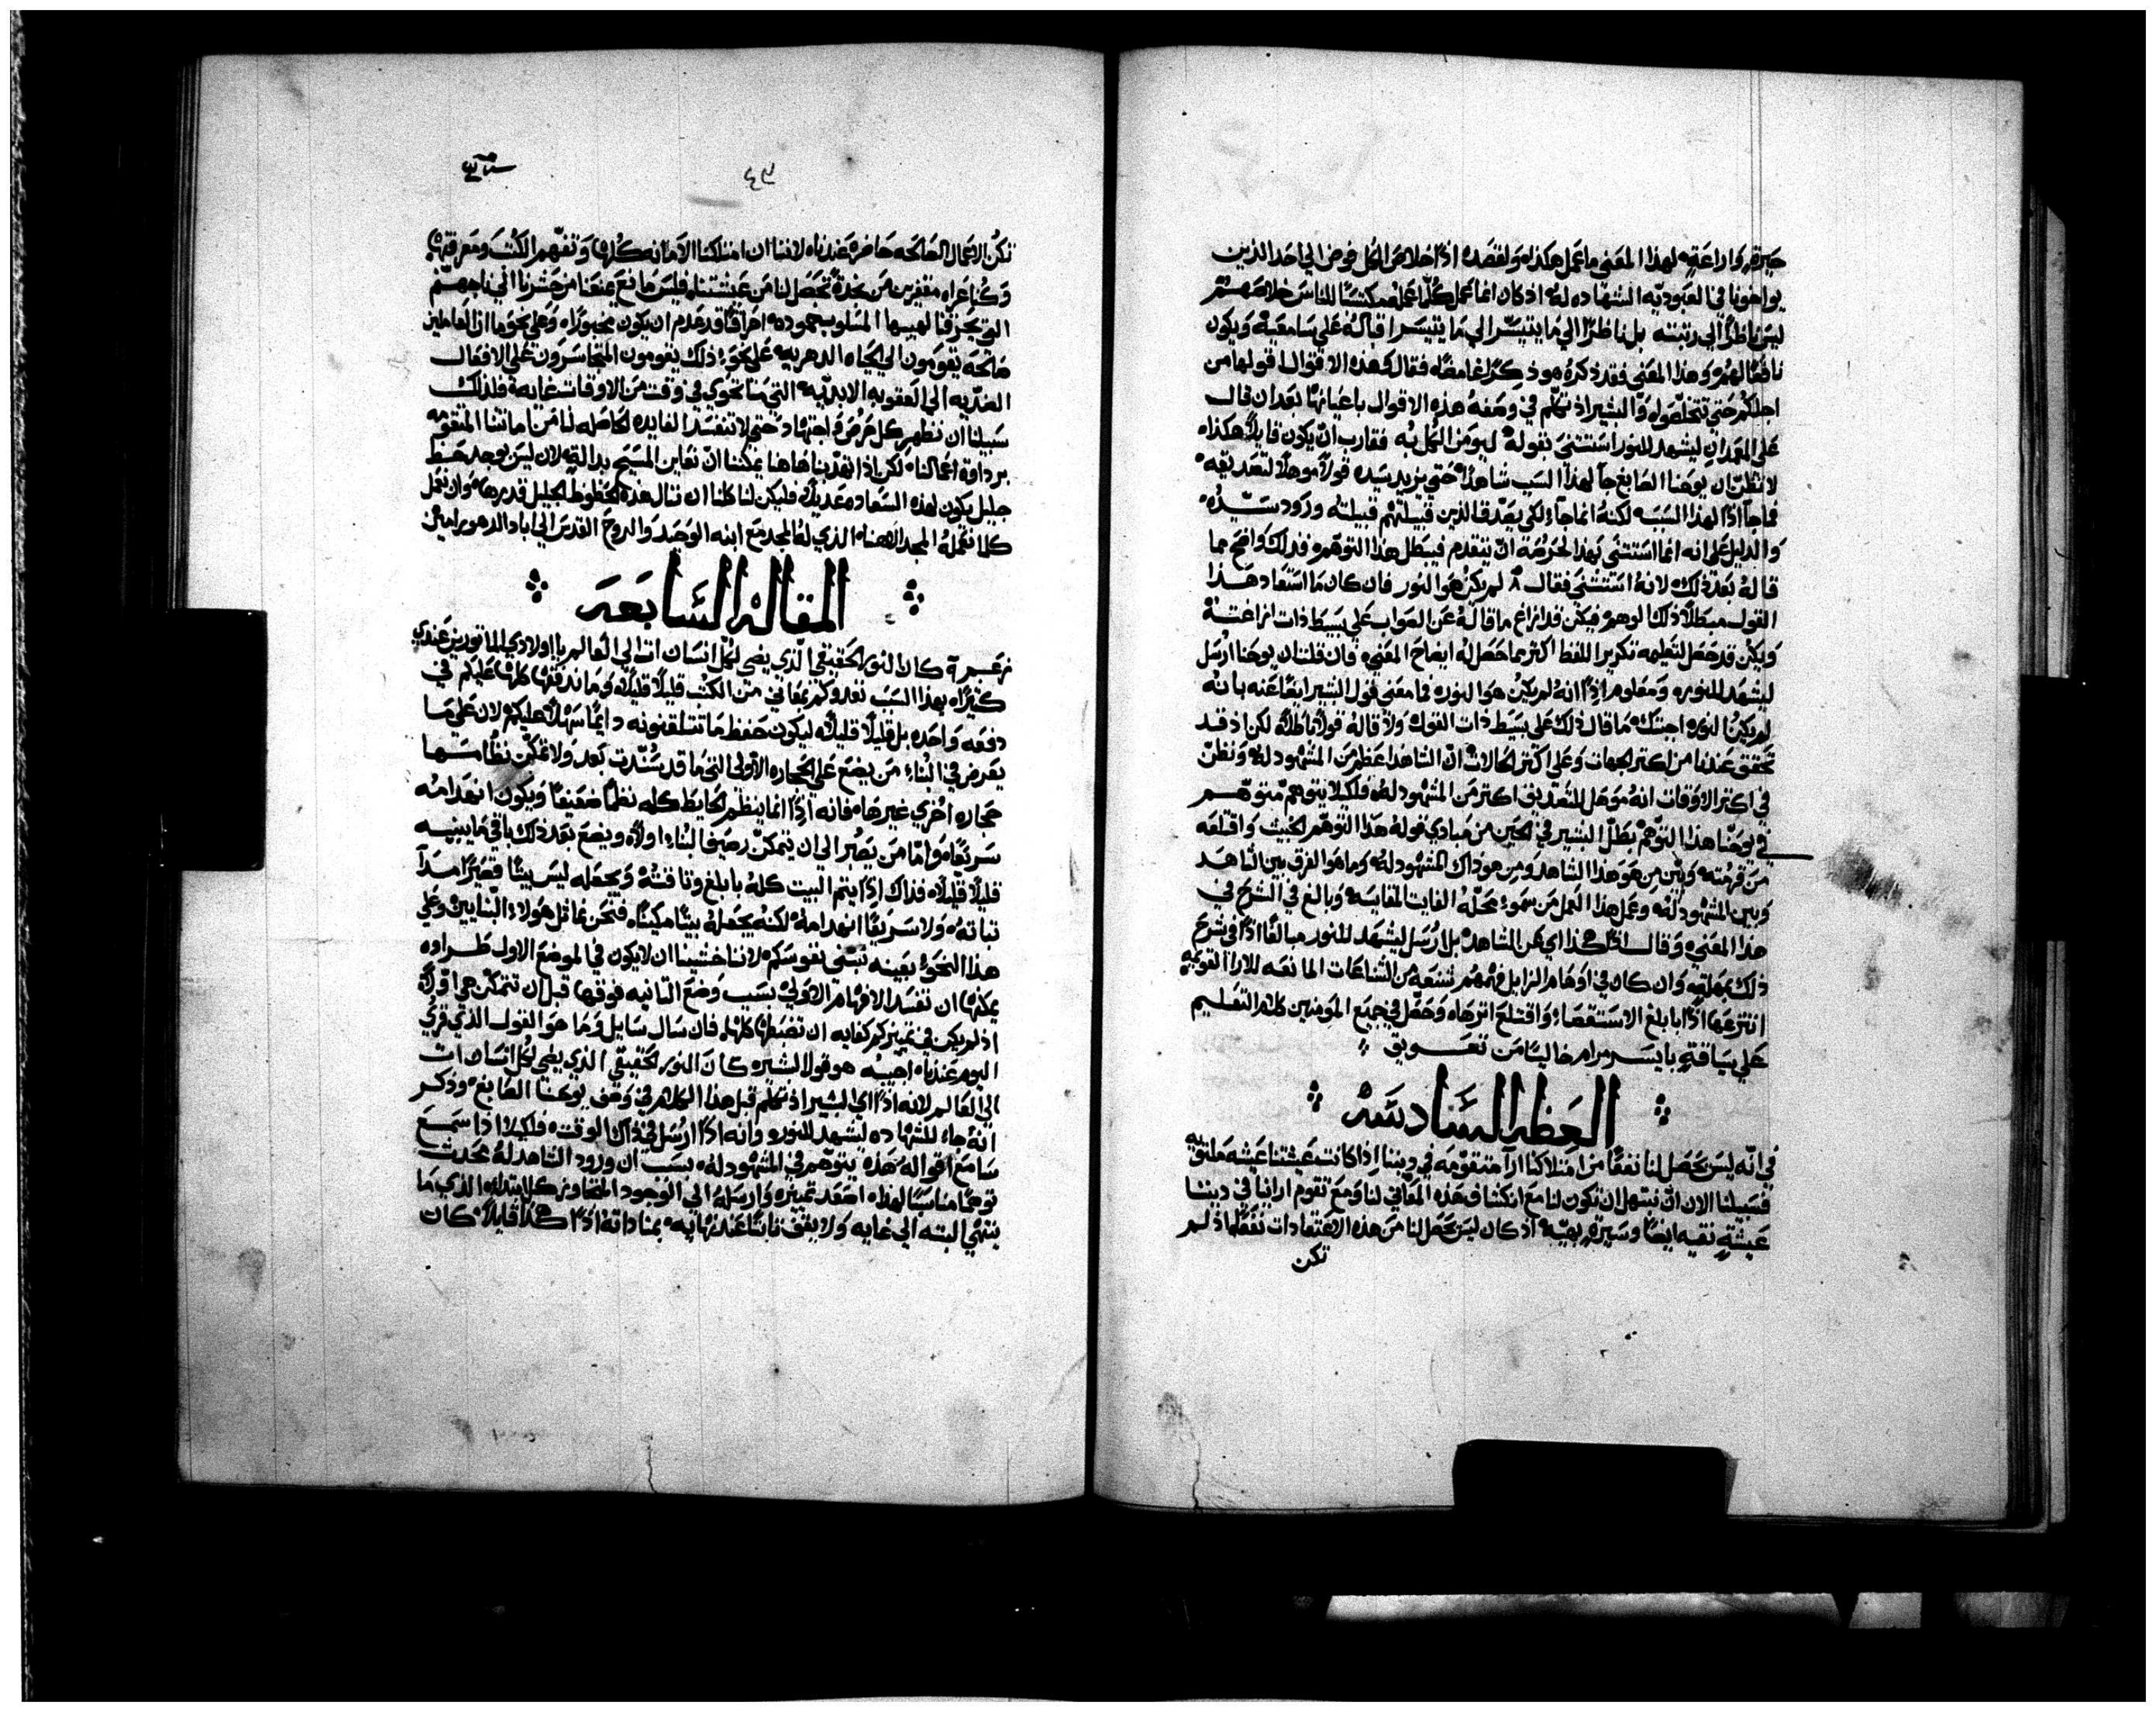 حيزة واراعة لهذا المعني ما عمل هكذا ولقصده اذًا خلاص الكل فوض الي احد الذين
يواخونا في العبوديه الشهاده له اذ كان انما عمل كلما عمله مكتسبًا للناس خلاصهم
ليس ناظرًا الي رتبته بل ناظرًا الي ما يتيسر اقباله علي سامعيه ويكون
نافعًا لهم وهذا المعني فقد ذكره هو ذكرًا غامضًا فقال هذه الاقوال اقولها من
اجلكم حتي تتخلصوا والبشير اذ تكلم في وصفه هذه الاقوال باعيانها بعد ان قال
علي المعمدان ليشهد للنور استثني بقوله ليومن الكل به فقارب ان يكون قايلًا هكذا
لا تظن ان يوحنا الصابغ جا لهذا السبب شاهدًا حتي يزيد سيده قولًا موهلًا لتصديقه
فما جا اذًا لهذا السبب لكنه انما جا لكي يصدق الذين قبيلتهم قبيلته ورود سيده
والدليل علي انه انما استثني بهذا الحرص ان يتقدم فيبطل هذا التوهم فذلك واضح مما
قاله بعد ذلك لانه استثني فقال لم يكن هو النور فان كان ما استعاد هذا
القول مبطلًا ذلك الوهم فيكن قد ازاغ ما قاله عن الصواب علي بسيط ذات
ويكن قد حصل لتعليمه تكرير اللفظ اكثر مما حصل له ايضاح المعني فان قلت ان يوحنا ارسل
ليشهد للنور ومعلوم اذًا انه لم يكن هو النور فما معني قول البشير ايضًا عنه بانه
لم يكن النور اجبتك ما قال ذلك علي بسيط ذات القول ولا قاله قولًا باطلًا لكن اذ قد
تحقق عندنا من اكثر الجهات وعلي اكثر الحالات ان الشاهد اعظم من المشهود له ونظن
في اكثر الاوقات انه موهل للتصديق اكثر من المشهود له فلكيلا يتوهم متوهم
في يوحنا هذا التوهم بطل البشير في الحين من مبادي قوله هذا التوهم الخبيث واقتلعه
من قرمته وبين من هو هذا الشاهد ومن هو ذاك المشهود له وما هو الفرق بين الشاهد
وبين المشهود له وعمل هذا العمل من سمو محله الفايت المقايسه وبالغ في الشرح في
هذا المعني وقال اذًا هكذا اي لم يكن الشاهد بل ارسل ليشهد للنور مبالغًا اذًا في شرح
ذلك بمهلة وان كان في اوهام الزايل فهمهم شنعة من الشناعات المانعه للارا القويمه
انتزعها اذًا بابلغ الاستقصا واقتلع اثرها وحصل في جميع المومنين كلام التعليم
علي سياقة بايسر مرام خاليًا من تعويق
العظه السادسه
في انه ليس يحصل لنا نفعًا من امتلاكنا ارا متقومه في ديننا اذا كانت عيشتنا عيشه
فسبيلنا الان ان نتسهل ان تكون لنا مع انكشاف هذه المعاني لنا ومع تقوم اراينا في ديننا
عيشة نقيه ايضًا وسيرة بهيه اذ كان ليس يحصل لنا من هذه الاعتقادات نفعًا اذ لم
تكن
٤٩
تكن الاعمال الصالحه حاضرة عندنا لاننا ان امتلكنا الامانه كلها وتفهم الكتب ومعرفتها
وكنا عراه مقفرين من نجدة تحصل لنا من عيشتنا فليس مانع يمنعنا من حشرنا الي نار جهنم
التي يحرقنا لهيبها المسلوب خموده احراقًا قد عدم ان يكون مجبورًا وعلي نحو ما ان العاملين
صالحه يقومون الي الحياه الدهريه علي نحو ذلك يقومون المتجاسرون علي الافعال
الضديه الي العقوبه الابديه التي ما تحوي في وقت من الاوقات غايه فلذلك
سبيلنا ان نظهر كل حرص واجتهاد حتي لا تفسد الفايده الحاصله لنا من امانتنا المتقومه
برداوة اعمالنا لكن اذا تقدمنا هاهنا يمكننا ان نعاين المسيح بدالة لان ليس يوجد حظ
جليل يكون لهذه السعاده عديلًا فليكن لنا كلنا ان ننال هذه الحظوظ الجليل قدرها وان نعمل
كلما نعمله لمجد الاهنا الذي له المجد مع ابنه الوحيد والروح القدس الي اباد الدهور امين
المقاله السابعه
كان النور الحقيقي الذي يضي لكل انسان ات الي العالم يا اولادي الماثورين عندي
كثيرًا بهذا السبب نغذوكم بمعاني من الكتب قليلًا قليلًا وما ندفقها كلها عليكم في
دفعه واحده بل قليلًا قليلًا ليكون حفظ ما تتلقنونه دايمًا سهلًا عليكم لان علي ما
يعرض في البناء من يضع علي الحجاره الاولي التي ما قد سندت بعد ولا تمكن نظامها
حجاره اخري غيرها فانه اذًا انما ينظم الحايط كله نظمًا ضعيفًا ويكون انهدامه
سريعًا واما من يصبر الي ان يتمكن رصيف البناء اولًا ويضع بعد ذلك باقي ما يبنيه
قليلًا قليلًا فذاك اذًا يتم البيت كله بابلغ وثاقته ويجعله ليس بيتًا قصيرًا مدًا
ثباته ولا سريعًا انهدامه لكنه يجعله بيتًا مكينًا فنحن نماثل هولاء البنايين وعلي
هذا النحو بعينه نبني نفوسكم لاننا خشينا ان لا يكون في الموضع الاول طراوه
يمكنها ان تفسد الافهام الاولي بسبب وضع الثانيه فوقها قبل ان تتمكن هي اولًا
اذ لم يكن في تمييزكم كفايه ان تضبطها كلها فان سال سايل وما هو القول الذي قري
اليوم عندنا اجيبه هو قول البشير كان النور الحقيقي الذي يضي لكل انسان ات
الي العالم لانه اذًا اي البشير اذ تكلم قبل هذا الكلام في وصف يوحنا الصابغ وذكر
انه جاء للشهاده ليشهد للنور وانه اذًا ارسل في ذاك الوقت فلكيلا اذا سمع
سامع اقواله هذه يتوهم في المشهود له بسبب ان ورود الشاهد له محدث
توهمًا مناسبًا لهذا اصعد تمييزه وارسله الي الوجود المتجاوز كل ابتدا الذي ما
ينتهي البته الي غايه ولا يقف ثابتًا عند نهايه بمناداته اذًا هكذا قايلًا كان